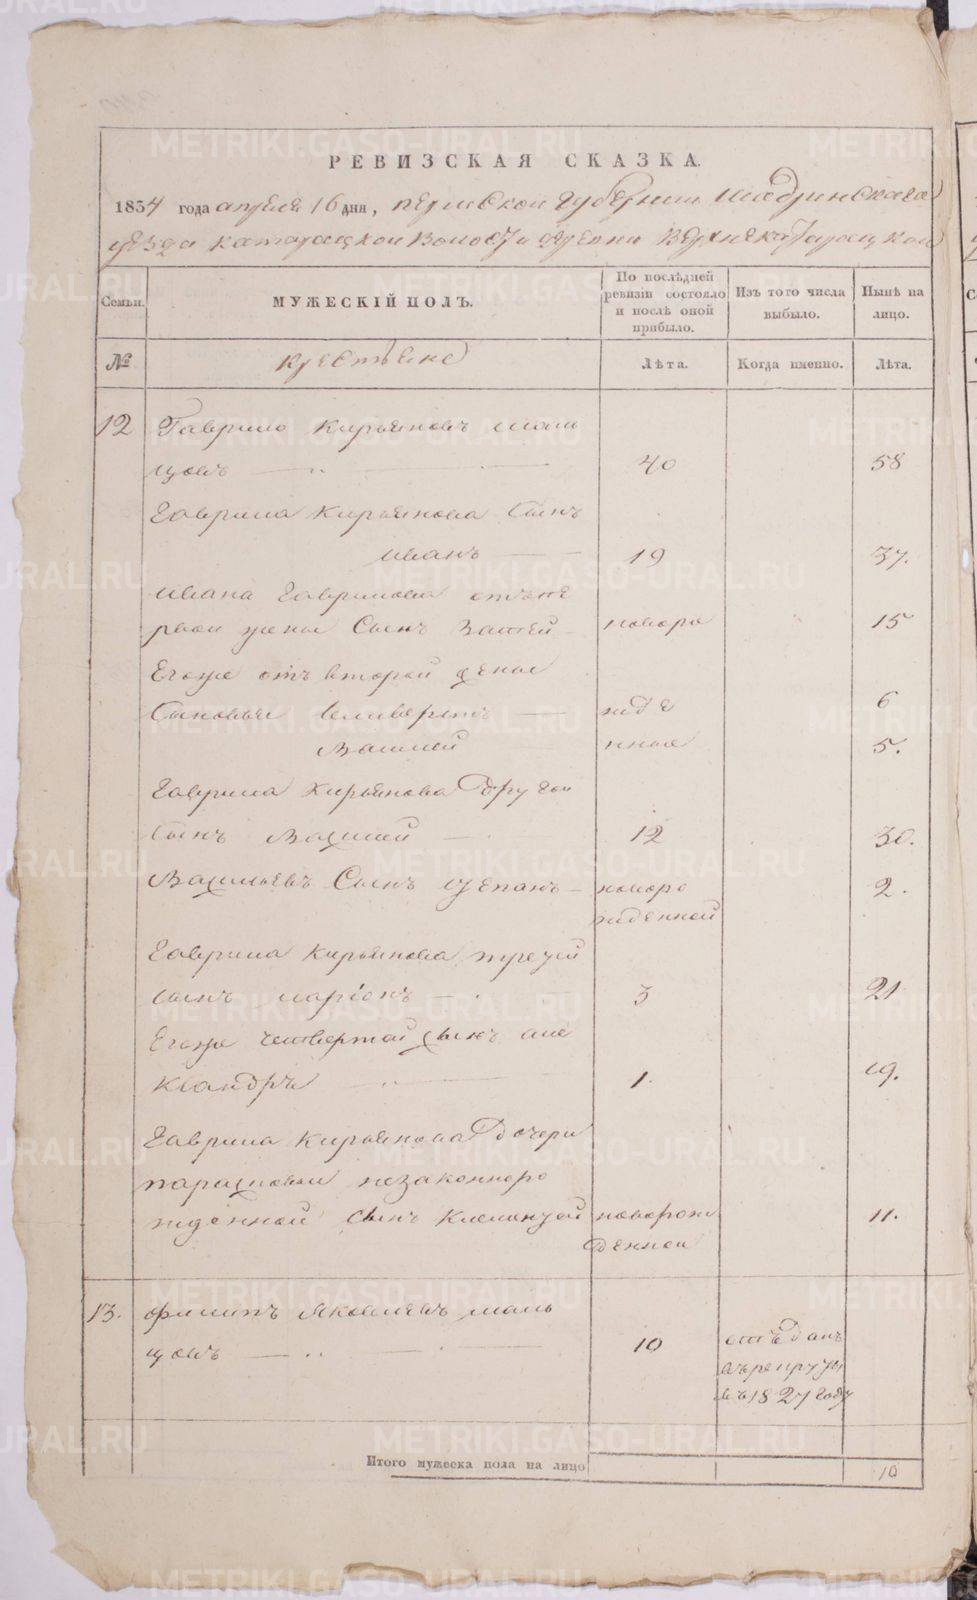 РЕВИЗСКАЯ СКАЗКА.
1834 года апреля 16 дня, пермской губернии Шадринскаго
уезда катарацкой волости деревни Верхнекатарацкой
Семьи. МУЖЕСКІЙ ПОЛЪ. По послѣдней ревизіи состояло и послѣ оной прибыло. Изъ того числа выбыло. Нынѣ на лицо.
№ крестьяне Лѣта. Когда именно. Лѣта.
12 Гаврило Кирьяновъ маль
цовъ 40 58
Гаврила Кирьянова Сынъ
иванъ 19 37.
ивана Гаврилова отъ пе
рвой жены Сынъ новоро 15
Егоже отъ второй жены
Сыновья Селиверстъ жде 6
нные 5.
Гаврила Кирьянова другой
Сынъ Василей 12 30.
Васильевъ Сынъ степанъ новоро 2.
жденной
Гаврила Кирьянова третей
сынъ ларіонъ 3 21
Егоже четвертой сынъ але
ксандръ 1. 19.
Гаврила Кирьянова дочери
парасковьи незаконноро
жденной сынъ Клементей новорож 11.
денной
13. филипъ Яковлевъ маль
цовъ 10 отъданъ
въ рекруты
въ 1827 году
Итого мужеска пола на лицо 10
METRIKI.GASO-URAL.RU